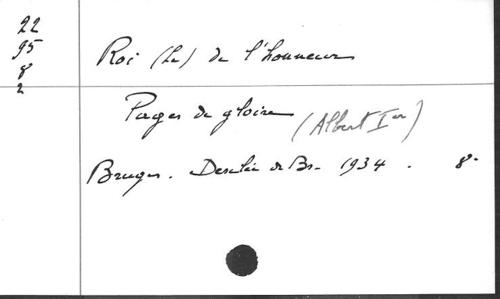 22
95
8
2
Roi (Le) de l'honneur
Pages de gloire (Albert Ier)
Bruges. Desclée de Br. 1934. 8°